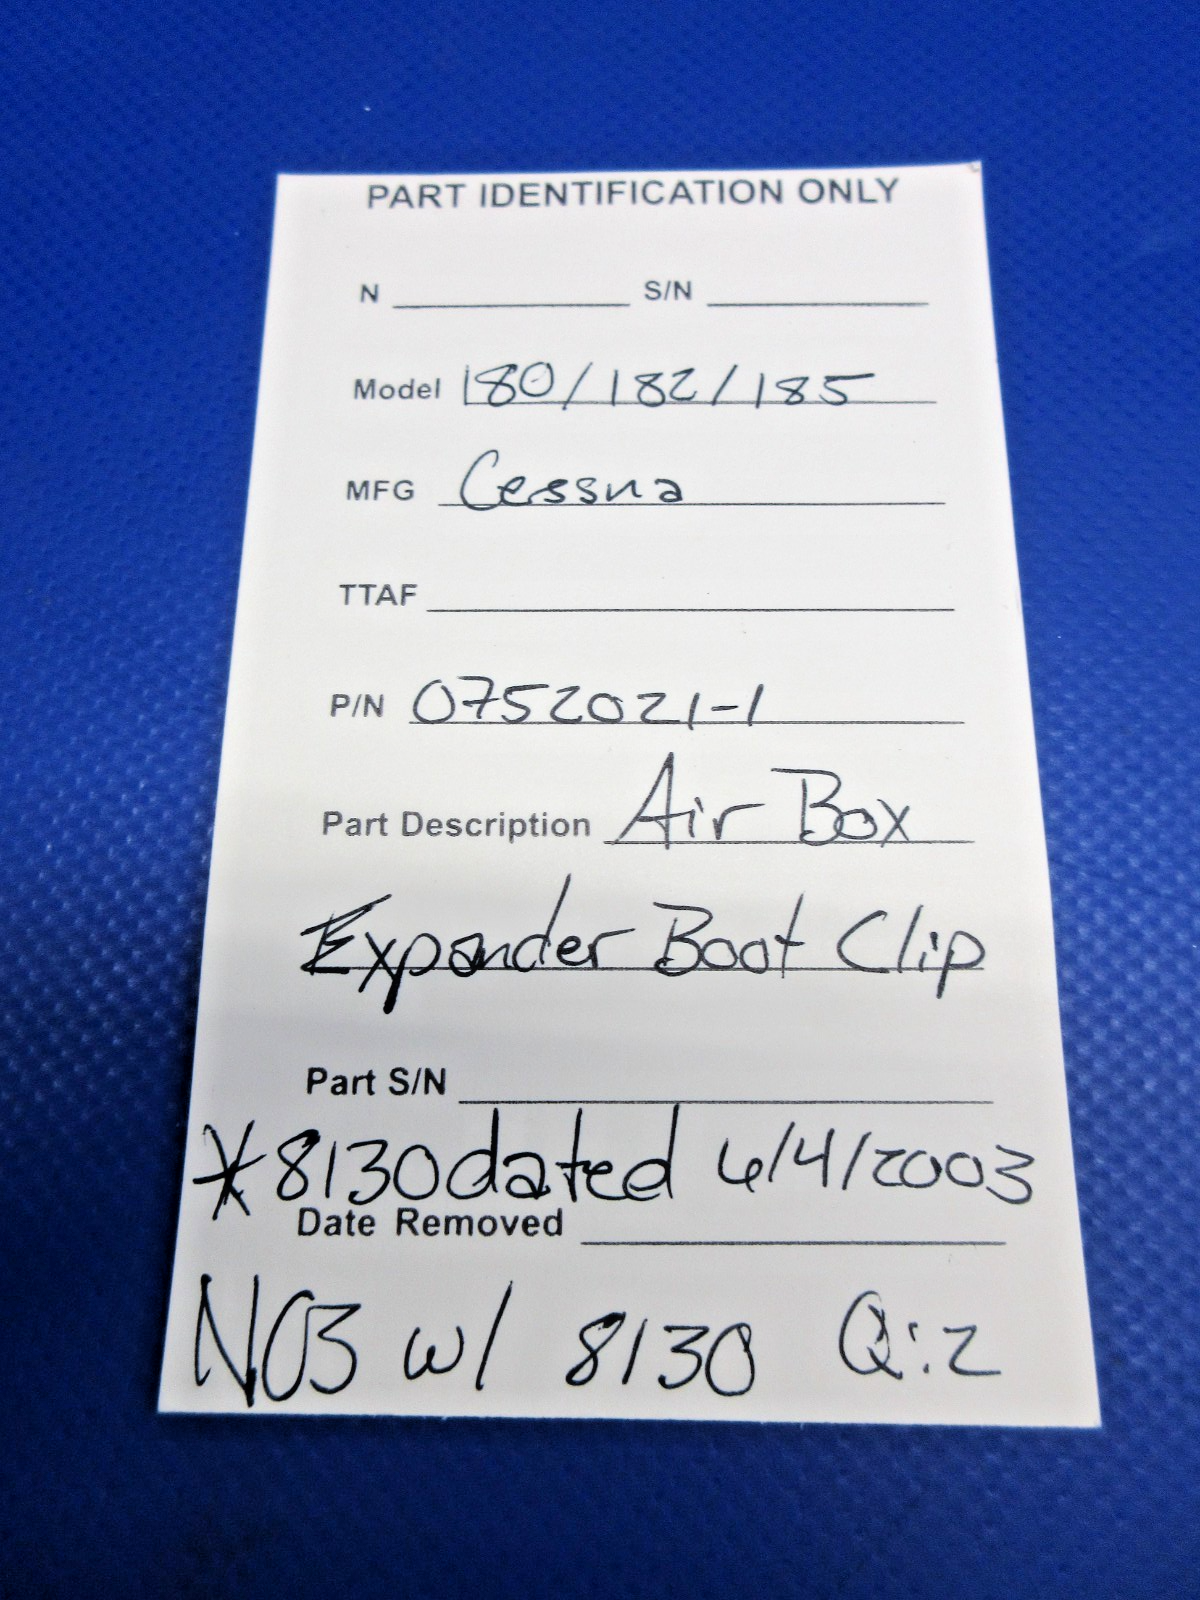 PART IDENTIFICATION ONLY
N S/N
Model 180/182/185
MFG Cessna
TTAF
P/N 0752021-1
Part Description Air Box
Expander Boot Clip
Part S/N
*8130 dated 6/4/2003
Date Removed
NOS w/ 8130 Q:2